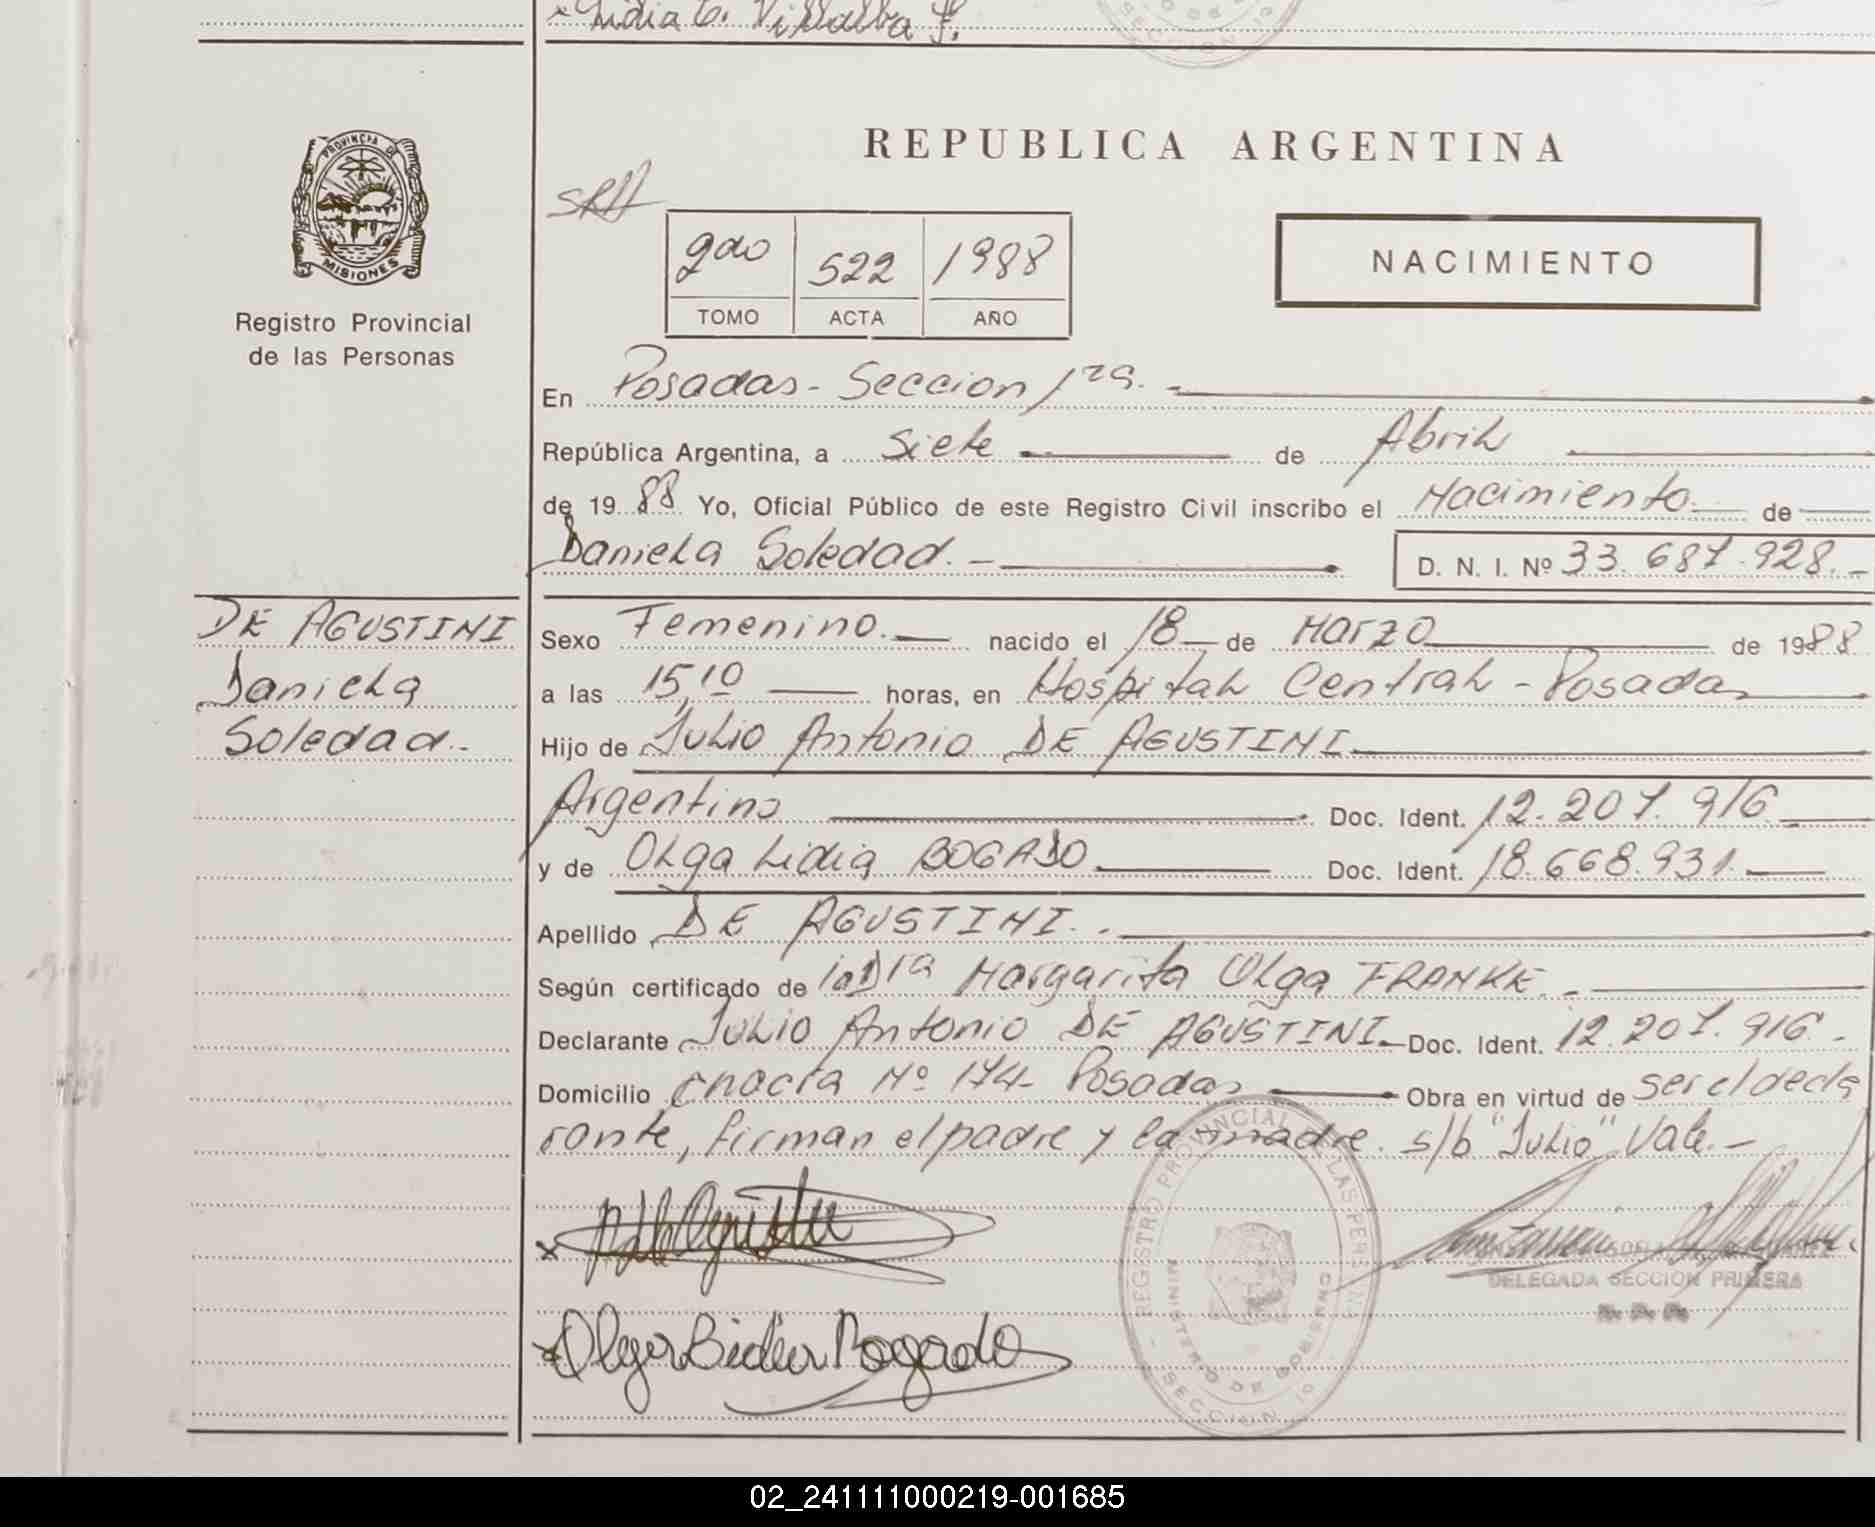 Lidia C. Villalba F.
PROVINCIA DE
MISIONES
Registro Provincial
de las Personas
REPUBLICA ARGENTINA
2do 522 1988
TOMO ACTA AÑO
NACIMIENTO
En Posadas - Seccion 1ra. -
República Argentina, a Siete de Abril
de 1988 Yo, Oficial Público de este Registro Civil inscribo el Nacimiento de
Daniela Soledad. - D. N. I. Nº 33.687.928.-
DE AGUSTINI
Daniela
Soledad.-
Sexo Femenino. nacido el 18 de Marzo de 1988
a las 15,10 horas, en Hospital Central - Posadas
Hijo de Julio Antonio DE AGUSTINI
Argentino Doc. Ident. 12.207.916
y de Olga Lidia BOGADO Doc. Ident. 18.668.931.
Apellido DE AGUSTINI. -
Según certificado de la Dra Margarita Olga FRANKE. -
Declarante Julio Antonio DE AGUSTINI Doc. Ident. 12.207.916.-
Domicilio Chacra Nº 174- Posadas Obra en virtud de ser el decla
rante, firman el padre y la madre. s/b "Julio" Vale.-
REGISTRO PROVINCIAL DE LAS PERSONAS
MINISTERIO DE GOBIERNO
SECCION 1a
DELEGADA SECCION PRIMERA
Olga Lidia Bogado
02_241111000219-001685